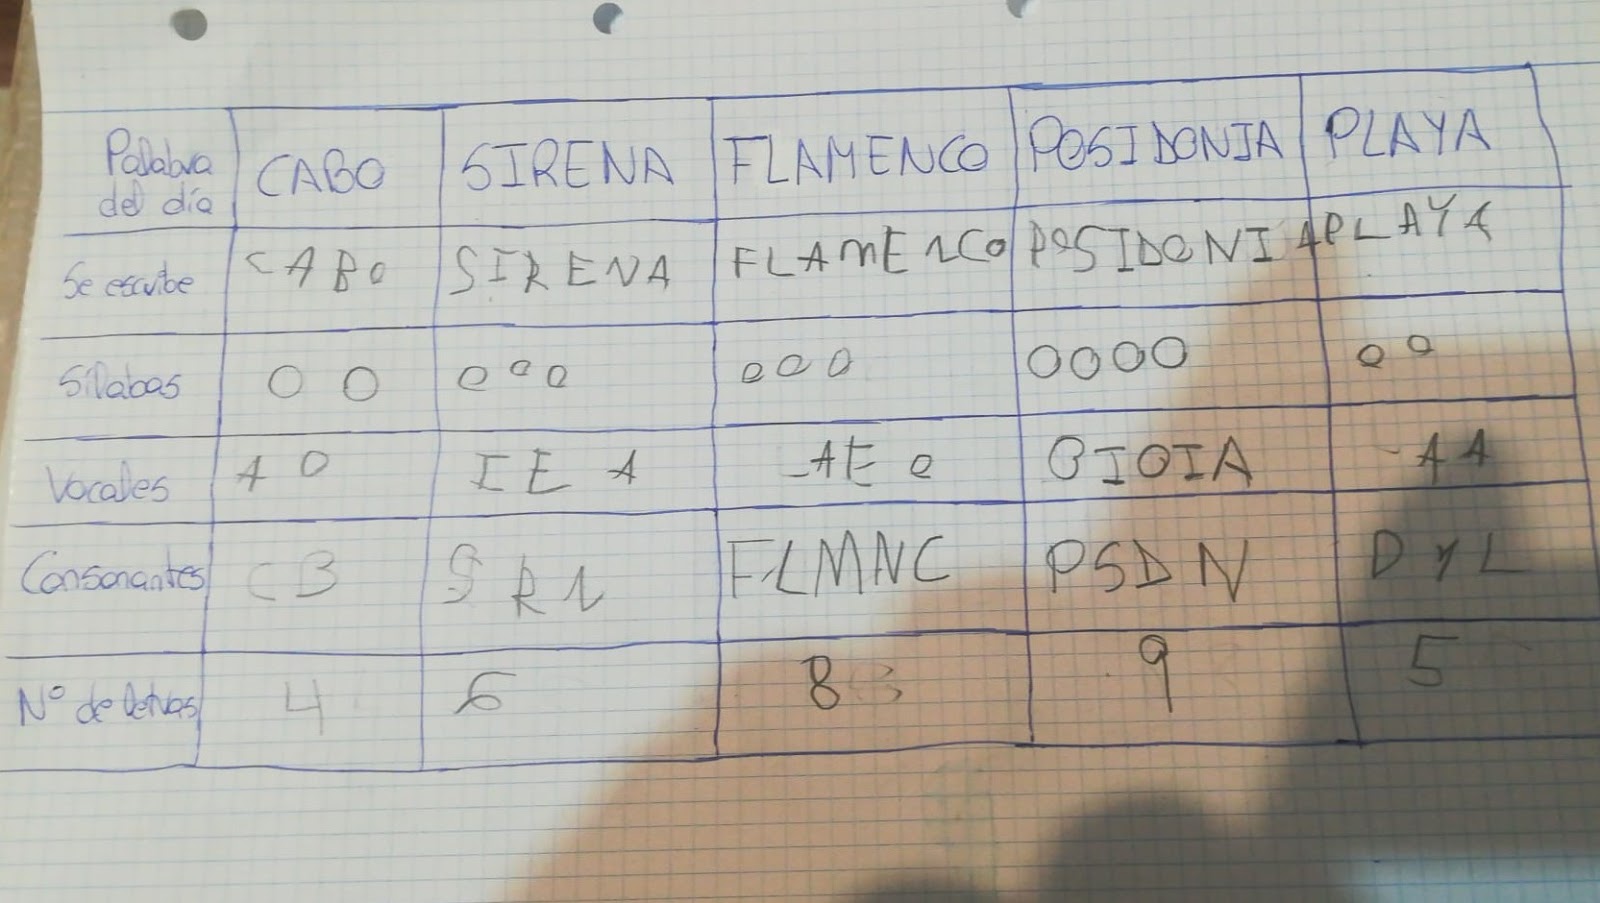 Palabra del día CABO SIRENA FLAMENCO POSIDONIA PLAYA
Se escribe CABO SIRENA FLAMENCO POSIDONIA PLAYA
Sílabas O O O O O O O O O O O O O O
Vocales A O I E A A E O O I O I A A A
Consonantes C B S R N F L M N C P S D N D Y L
Nº de letras 4 6 8 9 5